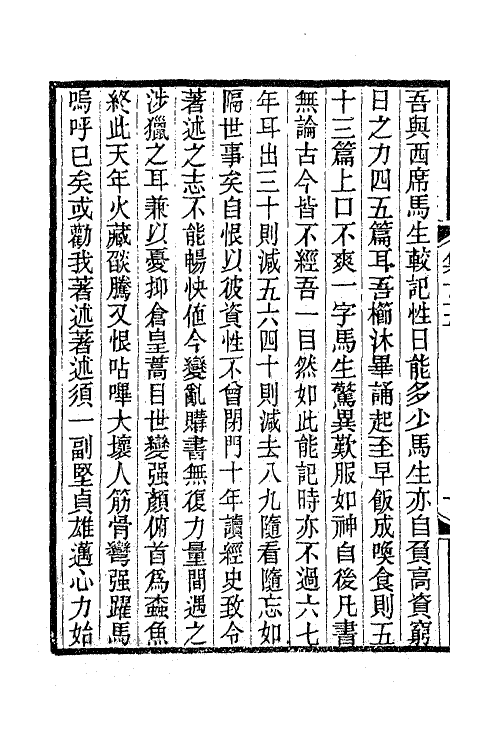 吾與西席馬生較記性日能多少馬生亦自負高資窮
日之力四五篇耳吾櫛沐畢誦起至早飯成喚食則五
十三篇上口不爽一字馬生驚異歎服如神自後凡書
無論古今皆不經吾一目然如此能記時亦不過六七
年耳出三十則減五六四十則減去八九隨看隨忘如
隔世事矣自恨以彼資性不曾閉門十年讀經史致令
著述之志不能暢快値今變亂購書無復力量間遇之
涉獵之耳兼以憂抑倉皇蒿目世變强顏俯首爲蠹魚
終此天年火藏燄騰又恨呫嗶大壞人筋骨彎强躍馬
嗚呼已矣或勸我著述著述須一副堅貞雄邁心力始